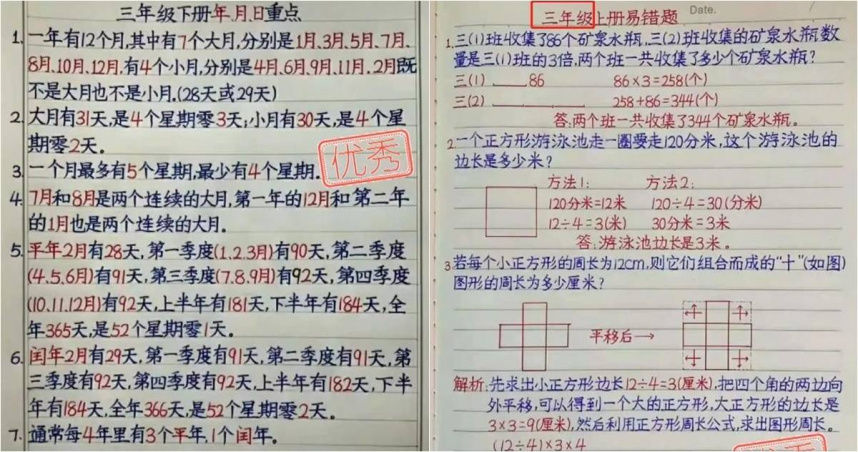 三年级下册年、月、日重点
1. 一年有12个月,其中有7个大月,分别是1月、3月、5月、7月、
8月、10月、12月,有4个小月,分别是4月、6月、9月、11月、2月既
不是大月也不是小月。(28天或29天)
2. 大月有31天,是4个星期零3天;小月有30天,是4个星
期零2天。
3. 一个月最多有5个星期,最少有4个星期。
优秀
4. 7月和8月是两个连续的大月,第一年的12月和第二年
的1月也是两个连续的大月。
5. 平年2月有28天,第一季度(1.2.3月)有90天,第二季度
(4.5.6月)有91天,第三季度(7.8.9月)有92天,第四季度
(10.11.12月)有92天,上半年有181天,下半年有184天,全
年365天,是52个星期零1天。
6. 闰年2月有29天,第一季度有91天,第二季度有91天,第
三季度有92天,第四季度有92天,上半年有182天,下半
年有184天,全年366天,是52个星期零2天。
7. 通常每4年里有3个平年,1个闰年。
三年级上册易错题
Date.
1. 三(1)班收集了86个矿泉水瓶,三(2)班收集的矿泉水瓶数
量是三(1)班的3倍,两个班一共收集了多少个矿泉水瓶?
三(1) 86 86×3=258(个)
三(2) 258+86=344(个)
答:两个班一共收集了344个矿泉水瓶。
2. 一个正方形游泳池走一圈要走120分米,这个游泳池的
边长是多少米?
方法1: 方法2:
120分米=12米 120÷4=30(分米)
12÷4=3(米) 30分米=3米
答:游泳池边长是3米。
3. 若每个小正方形的周长为12cm,则它们组合而成的“十”(如图)
图形的周长为多少厘米?
平移后→
解析:先求出小正方形边长12÷4=3(厘米),把四个角的两边向
外平移,可以得到一个大的正方形,大正方形的边长是
3×3=9(厘米),然后利用正方形周长公式,求出图形周长。
(12÷4)×3×4